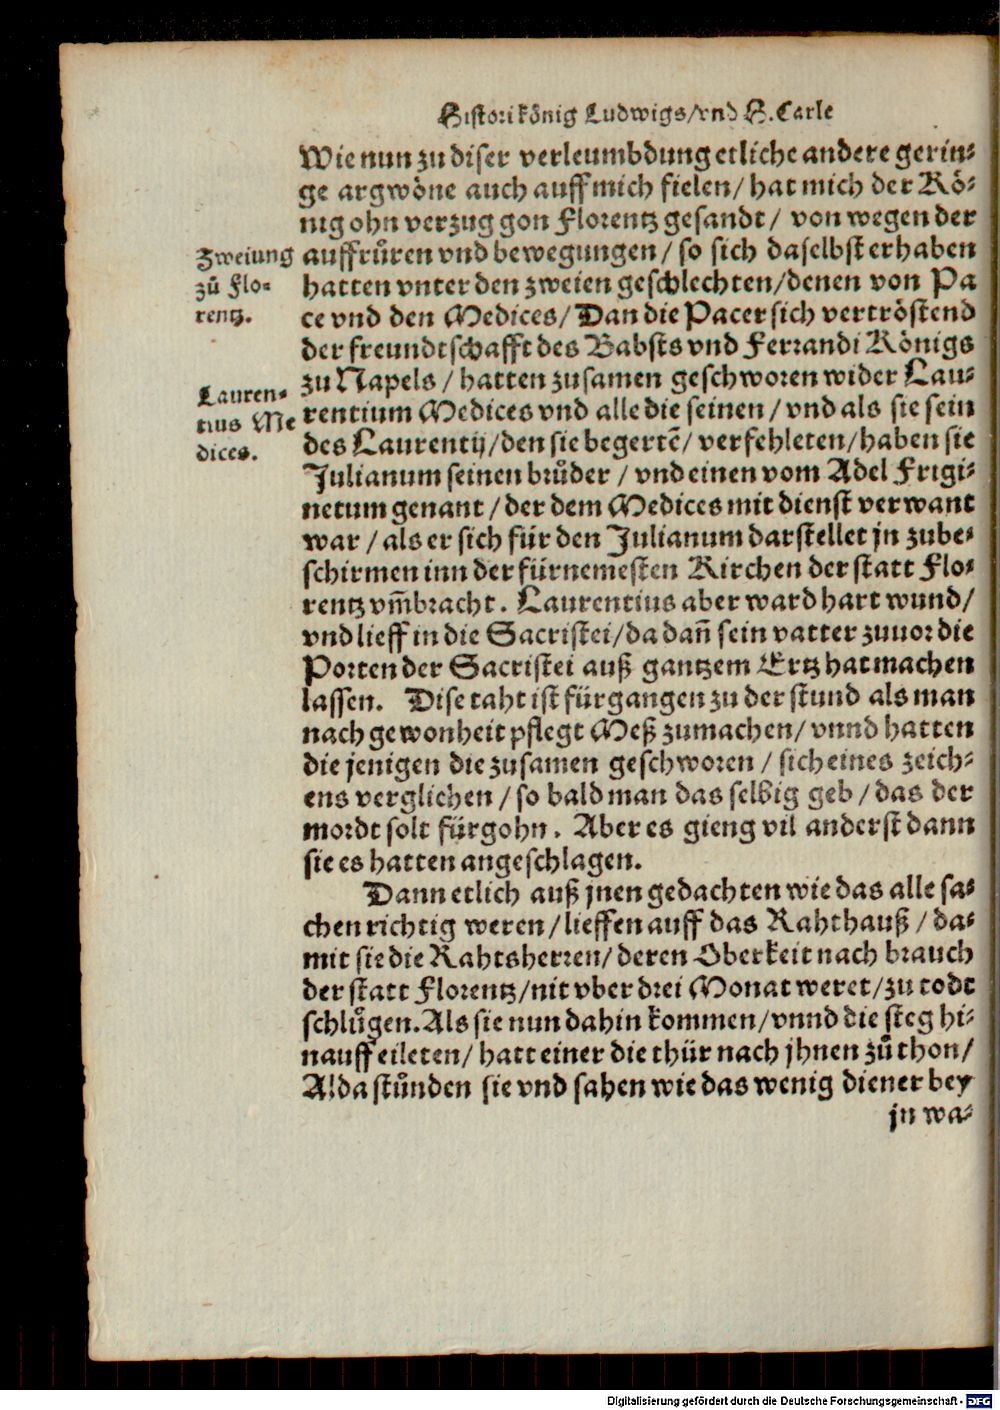 Histori König Ludwigs/vnd H. Carle
Wie nun zu diser verleumbdung etliche andere gerin⸗
ge argwöne auch auff mich fielen/ hat mich der Kö⸗
nig ohn verzug gon Florentz gesandt/ von wegen der
Zweiung
zů Flo⸗
rentz.
auffrůren vnd bewegungen/ so sich daselbst erhaben
hatten vnter den zweien geschlechten/denen von Pa
ce vnd den Medices/ Dan die Pacer sich vertröstend
der freundtschafft des Babsts vnd Ferrandi Königs
Lauren⸗
tius Me
dices.
zu Napels/ hatten zusamen geschworen wider Lau⸗
rentium Medices vnd alle die seinen/ vnd als sie sein
des Laurentij/den sie begertẽ/ verfehleten/haben sie
Julianum seinen brůder/ vnd einen vom Adel Frigi⸗
netum genant/ der dem Medices mit dienst verwant
war/ als er sich für den Julianum darstellet jn zube⸗
schirmen inn der fürnemesten Kirchen der statt Flo⸗
rentz vm̃bracht. Laurentius aber ward hart wund/
vnd lieff in die Sacristei/da dañ sein vatter zuuor die
Porten der Sacristei auß gantzem Ertz hat machen
lassen. Dise taht ist fürgangen zu der stund als man
nach gewonheit pflegt Meß zumachen/ vnnd hatten
die jenigen die zusamen geschworen/ sich eines zeich⸗
ens verglichen/ so bald man das selbig geb/ das der
mordt solt fürgohn. Aber es gieng vil anderst dann
sie es hatten angeschlagen.
Dann etlich auß jnen gedachten wie das alle sa⸗
chen richtig weren/lieffen auff das Rahthauß/ da⸗
mit sie die Rahtsherren/ deren Oberkeit nach brauch
der statt Florentz/nit vber drei Monat weret/zu todt
schlůgen. Als sie nun dahin kommen/vnnd die steg hi⸗
nauff eileten/ hatt einer die thür nach jhnen zů thon/
Alda stůnden sie vnd sahen wie das wenig diener bey
jn wa⸗
Digitalisierung gefördert durch die Deutsche Forschungsgemeinschaft - DFG